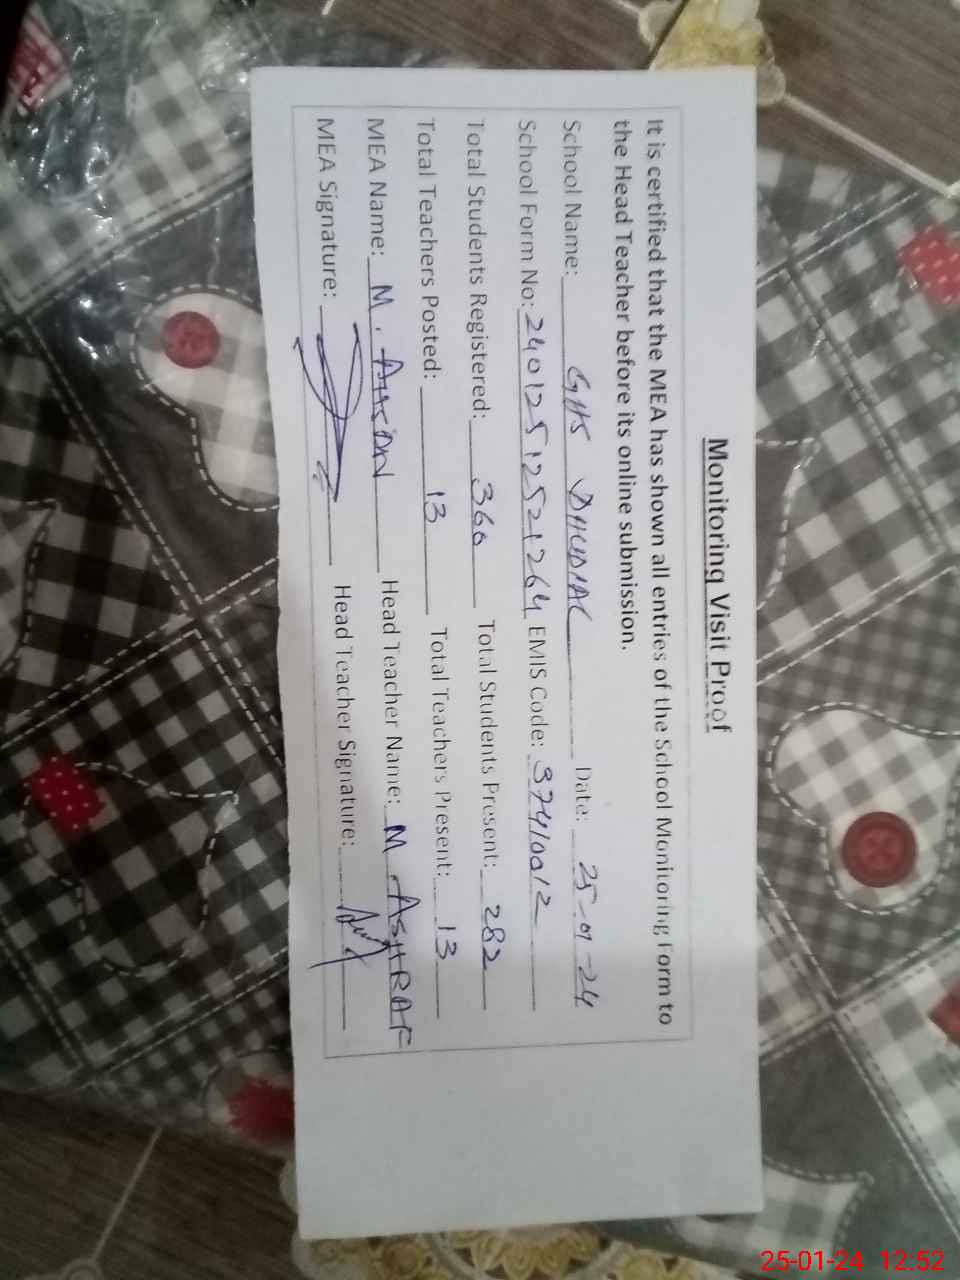 Monitoring Visit Proof
It is certified that the MEA has shown all entries of the School Monitoring Form to
the Head Teacher before its online submission.
School Name: GHS DHUDIAL Date: 25-01-24
School Form No: 24012512521264 EMIS Code: 37410012
Total Students Registered: 360 Total Students Present: 282
Total Teachers Posted: 13 Total Teachers Present: 13
MEA Name: M. Head Teacher Name: M. ASHRAF
MEA Signature: Head Teacher Signature:
25-01-24 12:52